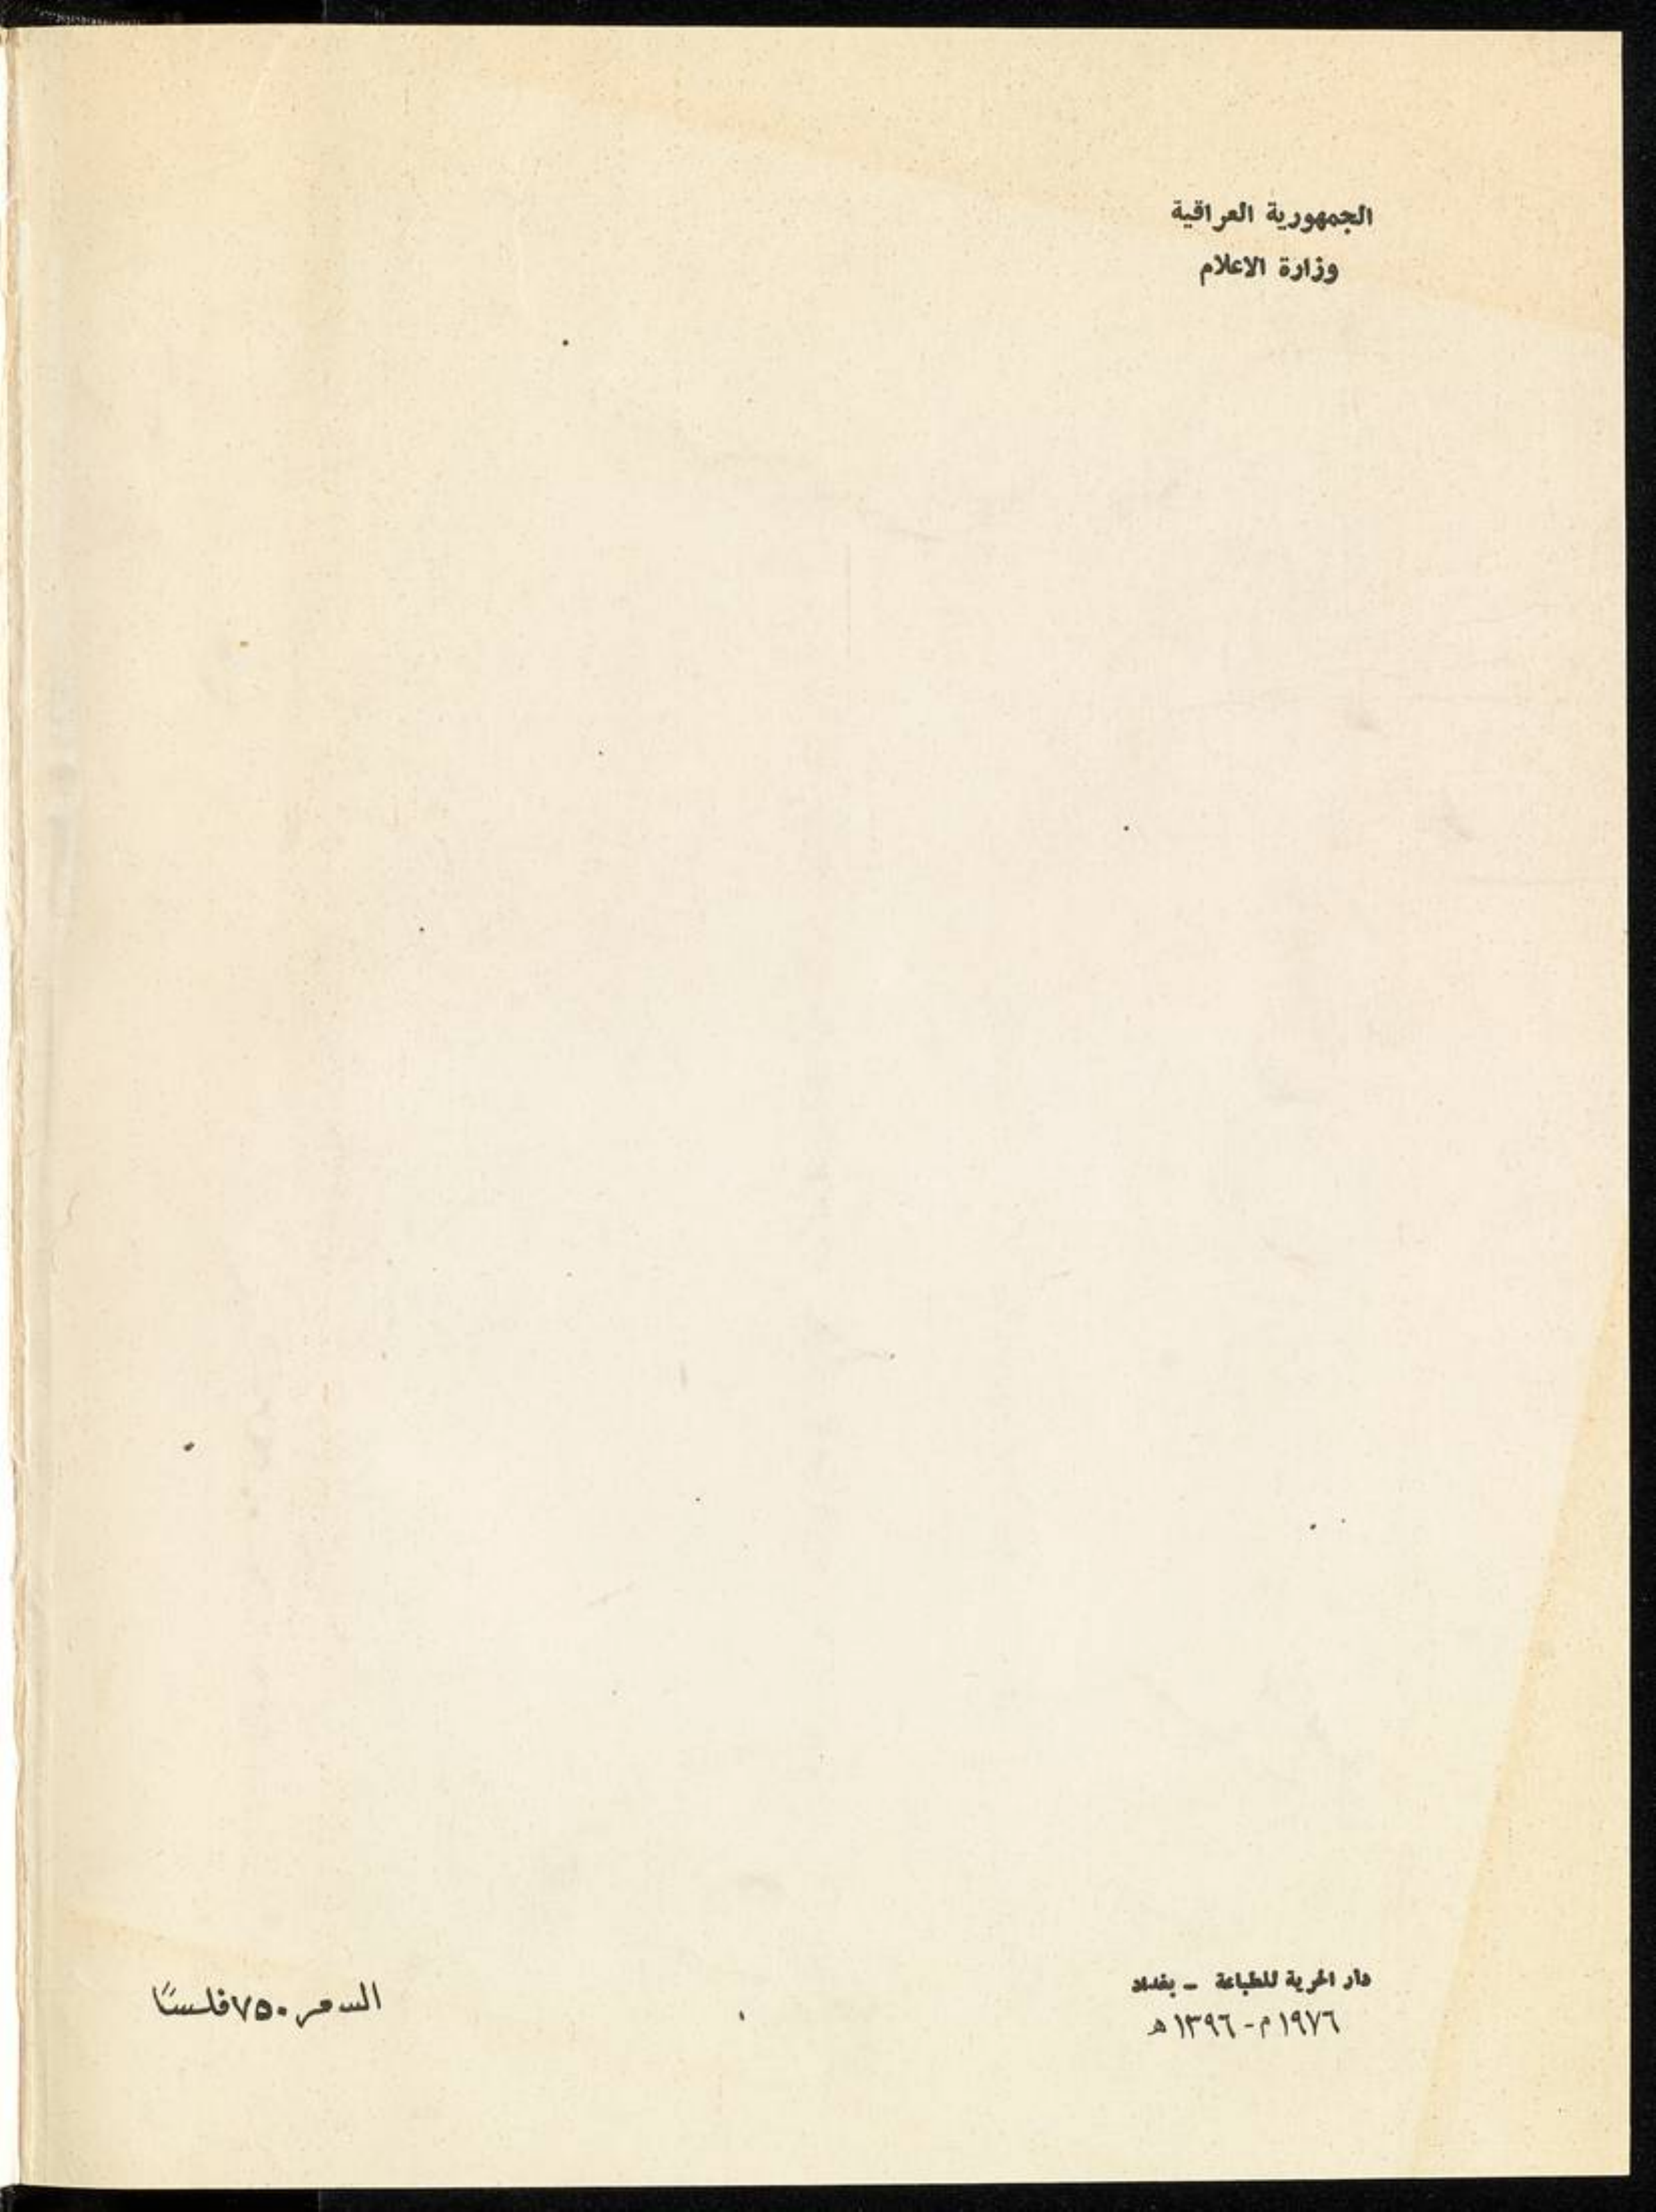 الجمهورية العراقية
وزارة الاعلام
دار الحرية للطباعة – بغداد
١٩٧٦ م - ١٣٩٦ هـ
السعر ٧٥٠ فلسًا